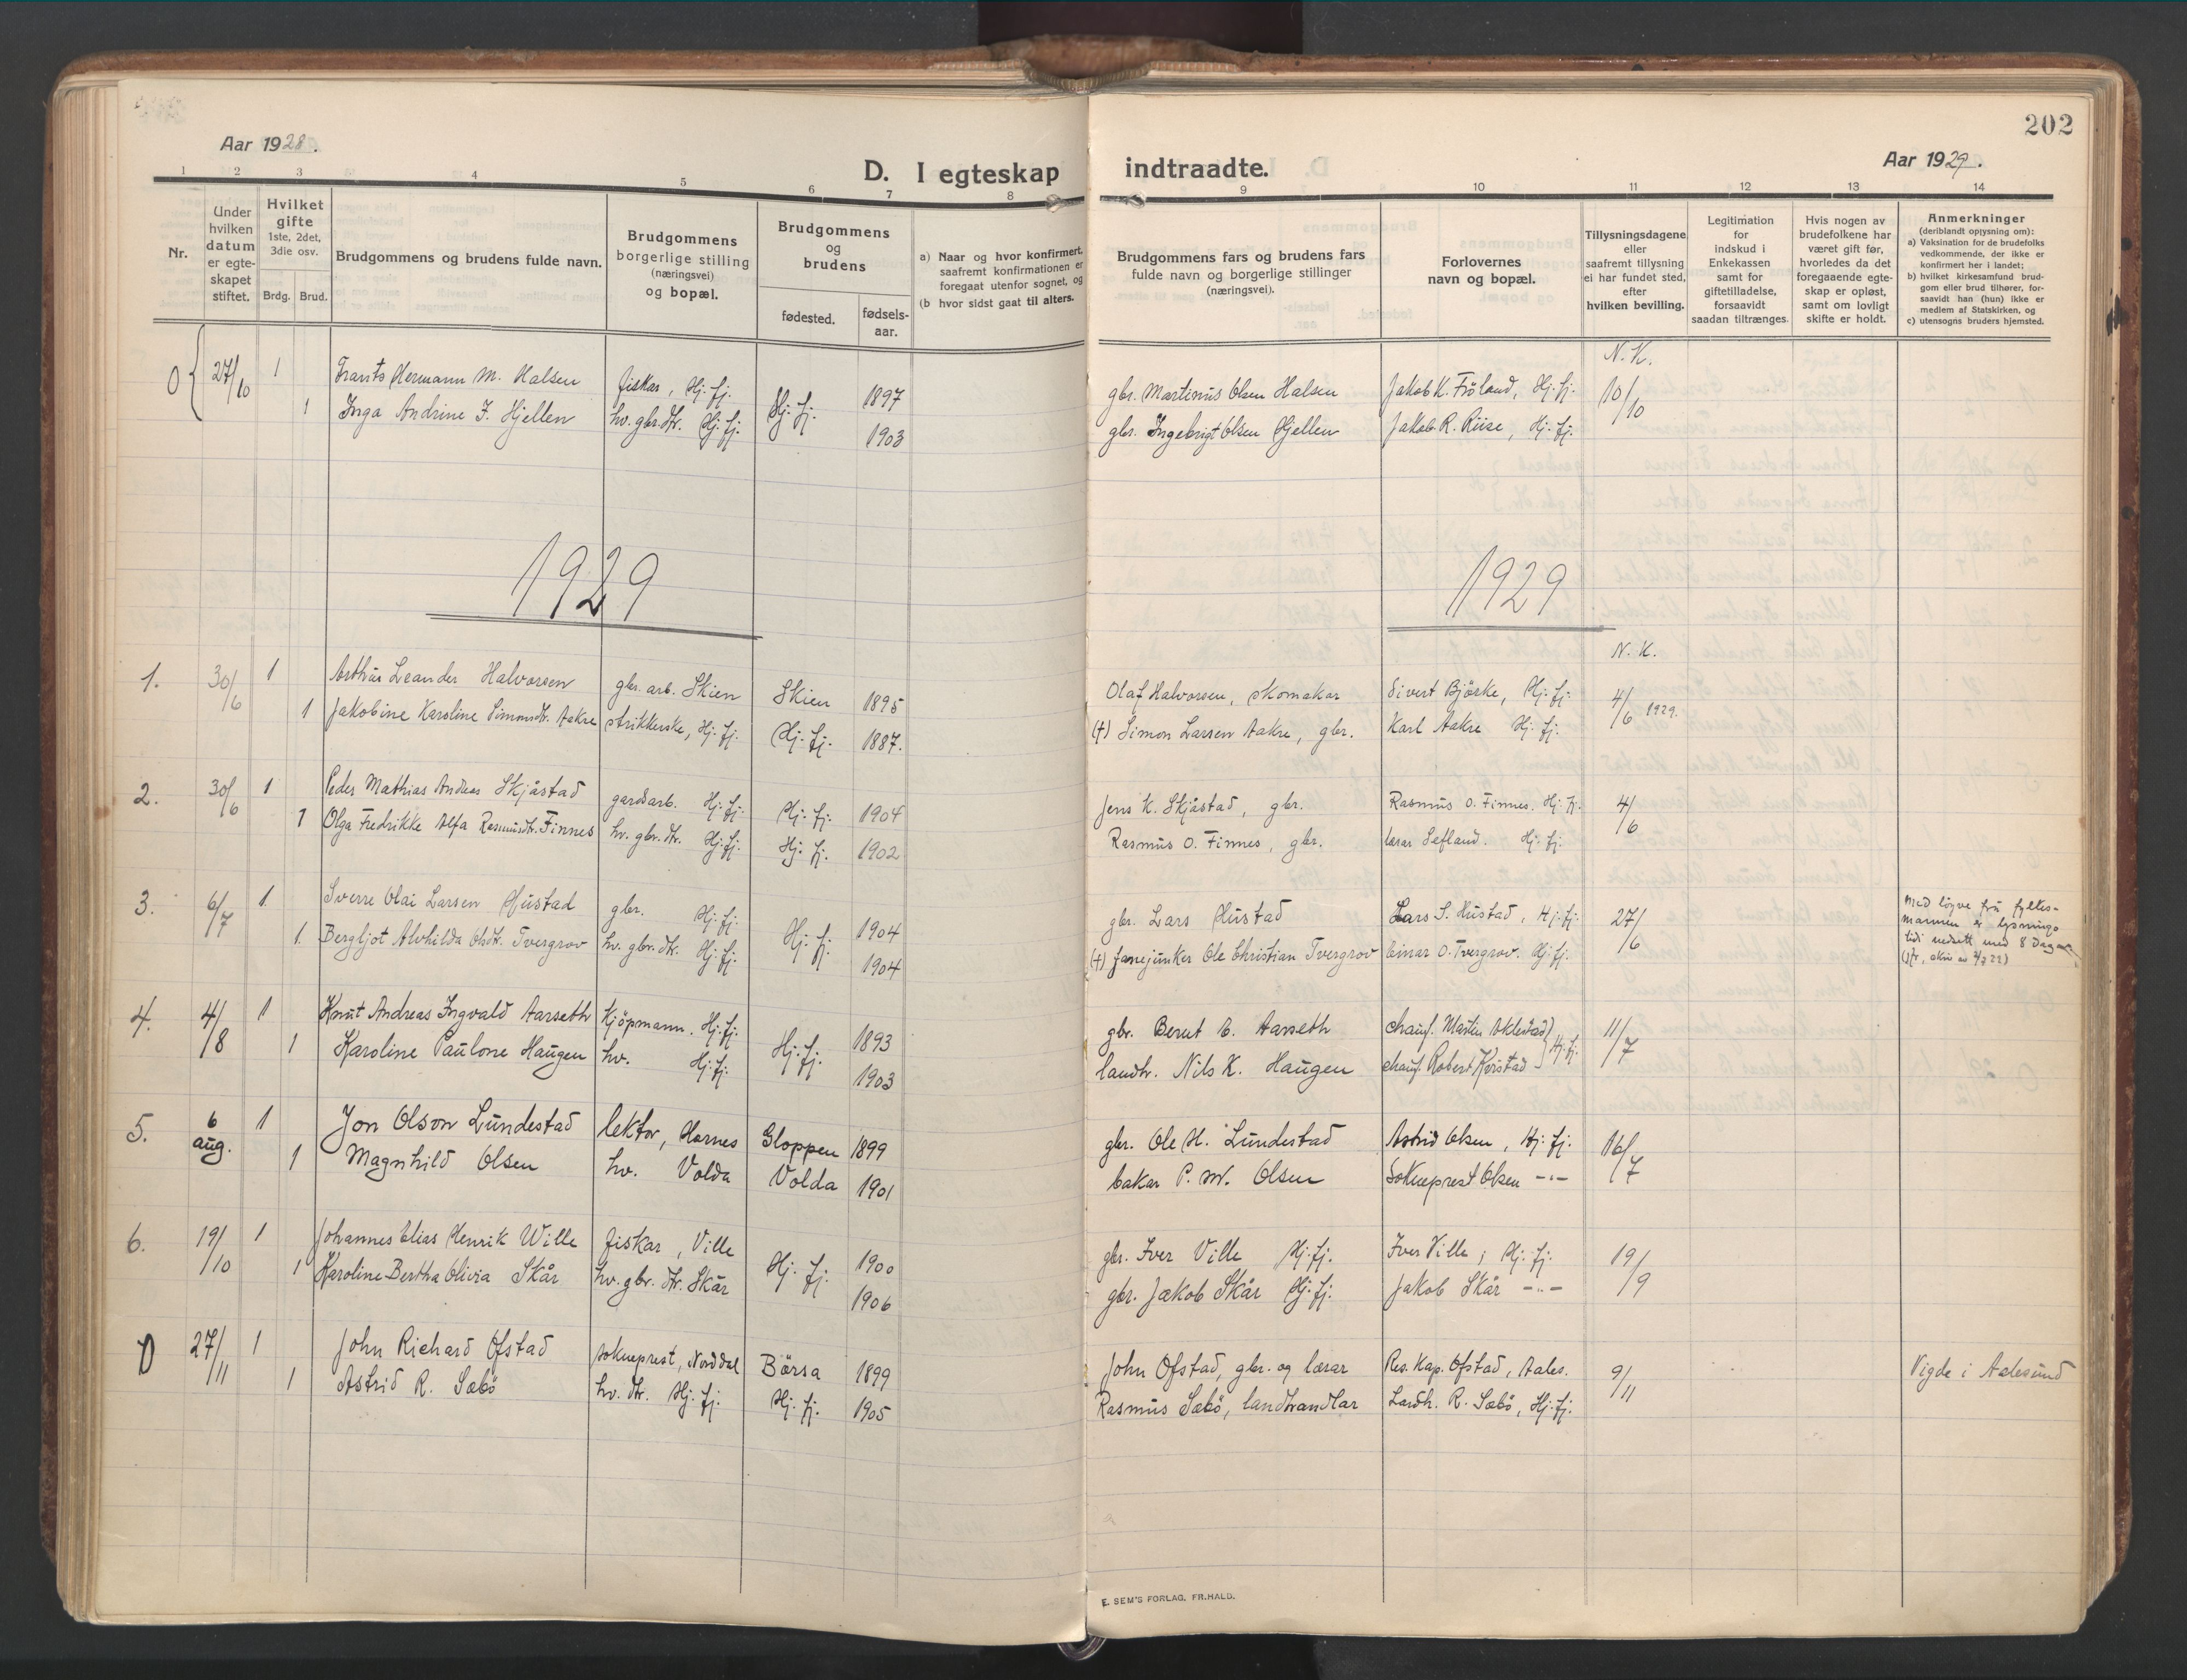 202
Aar 1928.
D. I egteskap indtraadte.
Aar 1929.
1 2 3 4 5 6 7 8 9 10 11 12 13 14
Nr.
Under hvilken datum er egte-skapet stiftet.
Hvilket gifte 1ste, 2det, 3die osv.
Brdg. Brud.
Brudgommens og brudens fulde navn.
Brudgommens borgerlige stilling (næringsvei) og bopæl.
Brudgommens og brudens
fødested.
fødsels-aar.
a) Naar og hvor konfirmert, saafremt konfirmationen er foregaat utenfor sognet, og
(b hvor sidst gaat til alters.
Brudgommens fars og brudens fars fulde navn og borgerlige stillinger (næringsvei).
Forlovernes navn og bopæl.
Tillysningsdagene eller saafremt tillysning ei har fundet sted, efter hvilken bevilling.
Legitimation for indskud i Enkekassen samt for giftetilladelse, forsaavidt saadan tiltrænges.
Hvis nogen av brudefolkene har været gift før, hvorledes da det foregaaende egte-skap er opløst, samt om lovligt skifte er holdt.
Anmerkninger (deriblandt opjysning om):
a) Vaksination for de brudefolks vedkommende, der ikke er konfirmert her i landet;
b) hvilket kirkesamfund brud-gom eller brud tilhører, for-saavidt han (hun) ikke er medlem af Statskirken, og
c) utensogns bruders hjemsted.
N. K.
0 27/10 1 Frants Hermann M. Halsen fiskar, Hj.fj. Hj.fj. 1897 gbr. Martinus Olsen Halsen Jakob K. Fröland, Hj.fj. 10/10
1 Inga Andrine I. Hjellen hv. gbr.dtr. Hj.fj. 1903 gbr. Ingebrigt Olsen Hjellen Jakob R. Riise, Hj.fj.
1929 1929
N. K.
1. 30/6 1 Arthur Leander Halvorsen gbr. arb. Skien Skien 1895 Olaf Halvorsen, skomakar Sivert Björke, Hj.fj. 4/6 1929.
1 Jakobine Karoline Simonsdtr. Aakre strikkerske, Hj.fj. Hj.fj. 1887. (†) Simon Larsen Aakre, gbr. Karl Aakre Hj.fj.
2. 30/6 1 Peder Mathias Andreas Skjåstad gardsarb. Hj.fj. Hj.fj. 1904 Jens K. Skjåstad, gbr. Rasmus O. Finnes. Hj.fj. 4/6
1 Olga Fredrikke Alfa Rasmusdtr. Finnes hv. gbr.dtr. Hj.fj. Hj.fj. 1902 Rasmus O. Finnes, gbr. lærar Sefland. Hj.fj.
3. 6/7 1. Sverre Olai Larsen Hustad gbr. Hj.fj. Hj.fj. 1904 gbr. Lars Hustad Lars S. Hustad, Hj.fj. 27/6
Med löyve frå fylkes-
mannen er lysnings
tidi nedsett med 8 Dagar
1. Bergljot Alvhilda Olsdtr. Tvergrov hv. gbr.dtr. Hj.fj. 1904 (†) fanejunker Ole Christian Tvergrov Einar O. Tvergrov. Hj.fj.
4. 4/8 1 Knut Andreas Ingvald Aarseth kjöpmann. Hj.fj. Hj.fj. 1893 gbr. Bernt E. Aarseth chauf. Martin Aklestad Hj.fj. 11/7
1 Karoline Paulone Haugen hv. Hj.fj. 1903 landh. Nils K. Haugen chauf. Robert Kvistad
5. 6 aug. 1 Jon Olson Lundestad lektor, Hornes Gloppen 1899 gbr. Ole H. Lundestad Astrid Olsen, Hj.fj. 16/7
1 Magnhild Olsen hv. Volda Volda 1901 bakar P. M. Olsen Sokneprest Olsen -"-
6. 19/10 1 Johannes Elias Henrik Wille fiskar, Ville Hj.fj. 1900 gbr. Iver Ville Hj.fj. Iver Ville, Hj.fj. 19/9
1 Karoline Bertha Olivia Skår hv. gbr.dtr. Skår 1906 gbr. Jakob Skår Hj.fj. Jakob Skår -"-
0 27/11 1 John Richard Ofstad sokneprest, Norddal Börsa 1899 John Ofstad, gbr. og lærar Res. Kap. Ofstad, Aales. 9/11 Vigde i Aalesund
1 Astrid R. Sæbö hv. dtr. Hj.fj. Hj.fj. 1905 Rasmus Sæbö, landhandlar Landh. R. Sæbö, Hj.fj.
E. SEM'S FORLAG. FR.HALD.